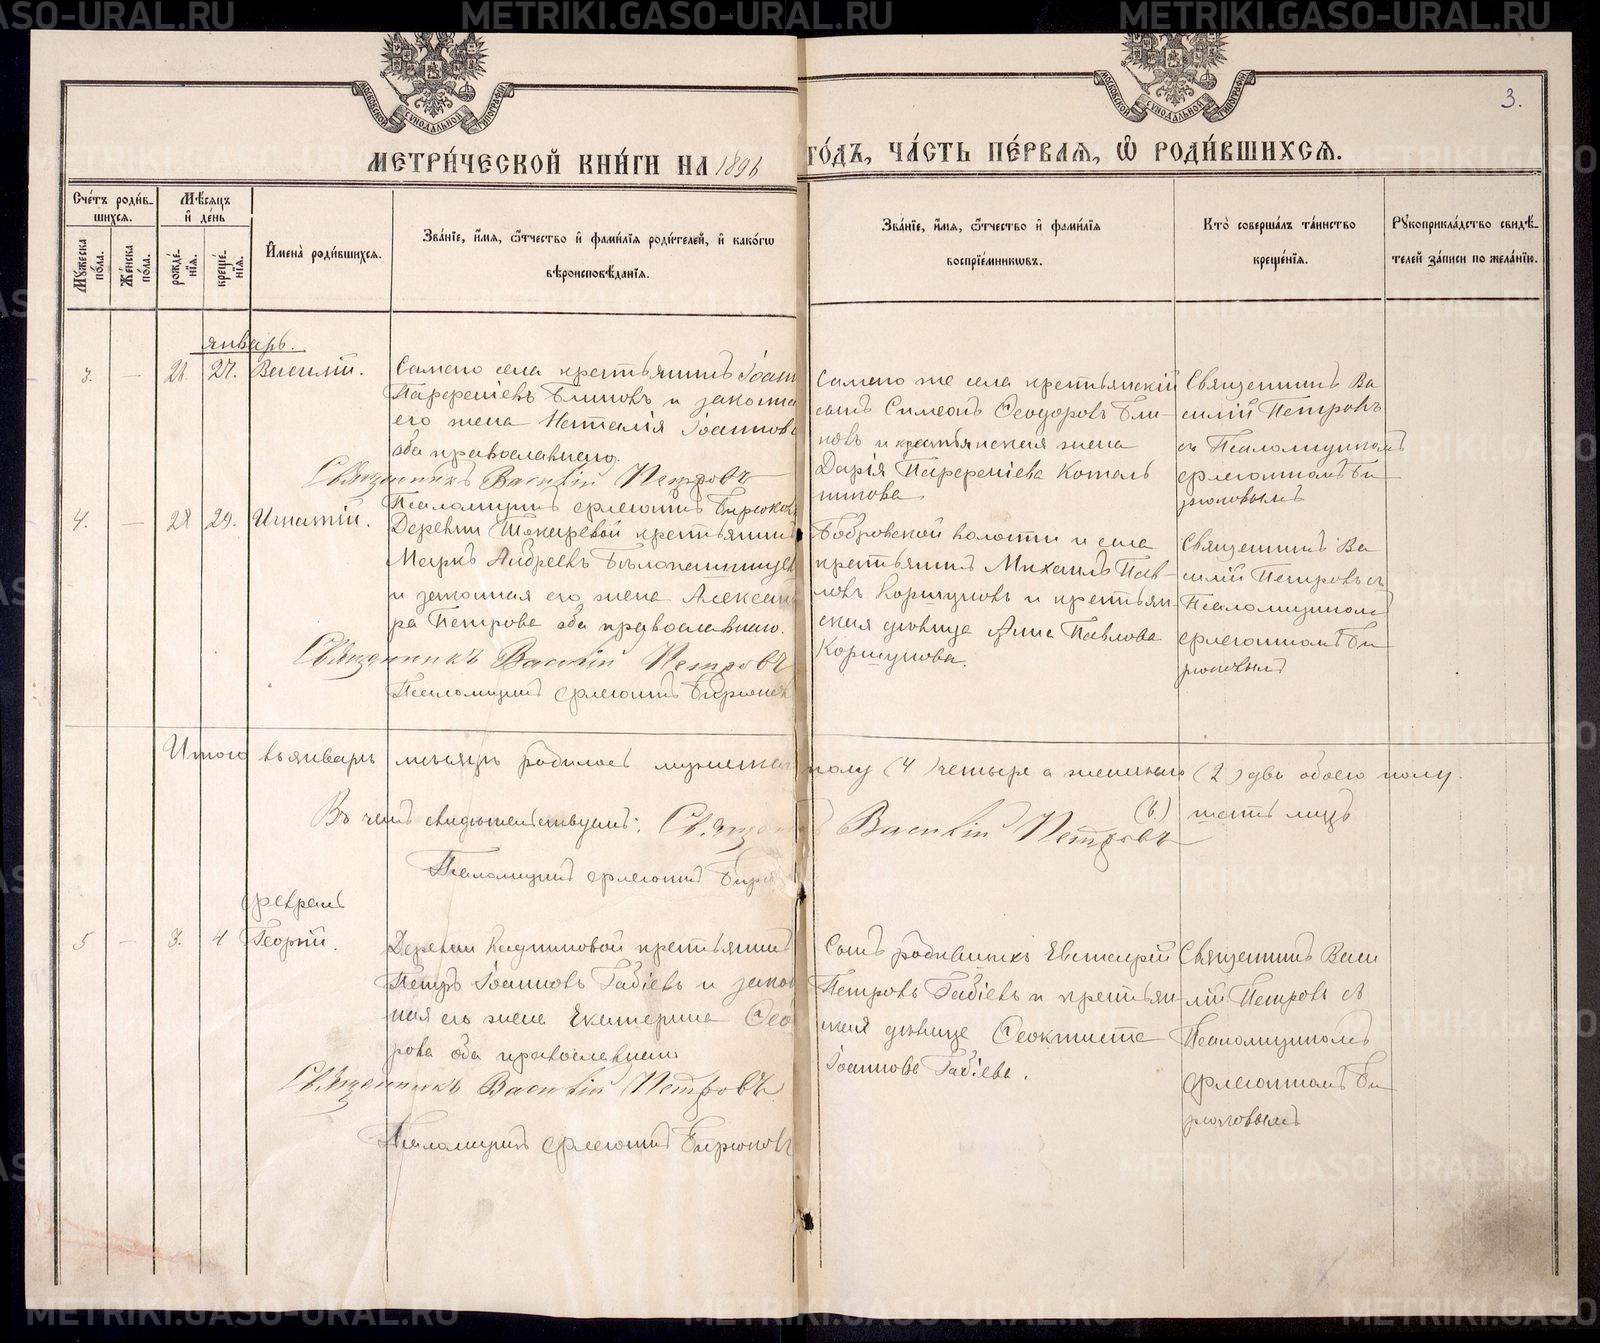 МЕТРИ́ЧЕСКОЙ КНИ́ГИ НА 1896 ГО́ДЪ, ЧА́СТЬ ПЕ́РВАЯ, Ѡ РОДИ́ВШИХСЯ.
3.
МОСКОВСКОЙ СУНОДАЛЬНОЙ ТИПОГРАФІИ
МОСКОВСКОЙ СУНОДАЛЬНОЙ ТИПОГРАФІИ
Сче́тъ роди́в-
шихся.
Му́жеска по́ла.
Же́нска по́ла.
Мѣ́сяцъ
и де́нь
рожде́-нія.
креще́-нія.
Имена̀ роди́вшихся.
Зва́ніе, и́мя, ѻ́тчество и фами́лія роди́телей, и како́гѡ
вѣроисповѣ́данія.
Зва́ніе, и́мя, ѻ́тчество и фами́лія
воспріе́мниковъ.
Кто̀ соверша́лъ та́инство
креще́нія.
Рукоприкла́дство свидѣ́-
телей за́писи по жела́нію.
январь.
3. — 26. 27. Василій.
Самаго села крестьянинъ Іоаннъ
Парфеніевъ Блиновъ и законная
его жена Наталія Іоаннова
оба православнаго.
Священникъ Василій Петровъ
Псаломщикъ Флегонтъ Бирюковъ
Самаго же села крестьянскій
сынъ Симеонъ Ѳеодоровъ Бли-
новъ и крестьянская жена
Дарія Парфеніева Котель
никова
Священникъ Ва
силій Петровъ
съ Псаломщикомъ
Флегонтомъ Би
рюковымъ
4. — 28 29. Игнатій.
Деревни Токаревой крестьянинъ
Маркъ Андреевъ Бѣлопашинцев
и законная его жена Алексан
ра Петрова оба православнаго.
Священникъ Василій Петровъ
Псаломщикъ Флегонтъ Бирюков
Бобровской волости и села
крестьянинъ Михаилъ Пав-
ловъ Коршуновъ и крестьян-
ская дѣвица Анна Павлова
Коршунова.
Священникъ Ва
силій Петровъ съ
Псаломщикомъ
Флегонтомъ Би
рюковымъ
Итого въ январѣ мѣсяцѣ родилось мужеска полу (4) четыре а женскаго (2) два обоего полу
(6) шесть лицъ
Въ чемъ свидѣтельствуемъ: Священникъ Василій Петровъ
Псаломщикъ Флегонтъ Бирю
февраль
5 — 3. 4 Георгій.
Деревни Кадниковой крестьянинъ
Петръ Іоанновъ Габіевъ и закон
ная его жена Екатерина Ѳео
рова оба православнаго
Священникъ Василій Петровъ.
Псаломщикъ Флегонтъ Бирюковъ
Сынъ родившихъ Евстафій
Петровъ Габіевъ и крестьян
ская дѣвица Ѳеоктиста
Іоаннова Габіева.
Священникъ Васи
лій Петровъ съ
Псаломщикомъ
Флегонтомъ Би
рюковымъ
METRIKI.GASO-URAL.RU